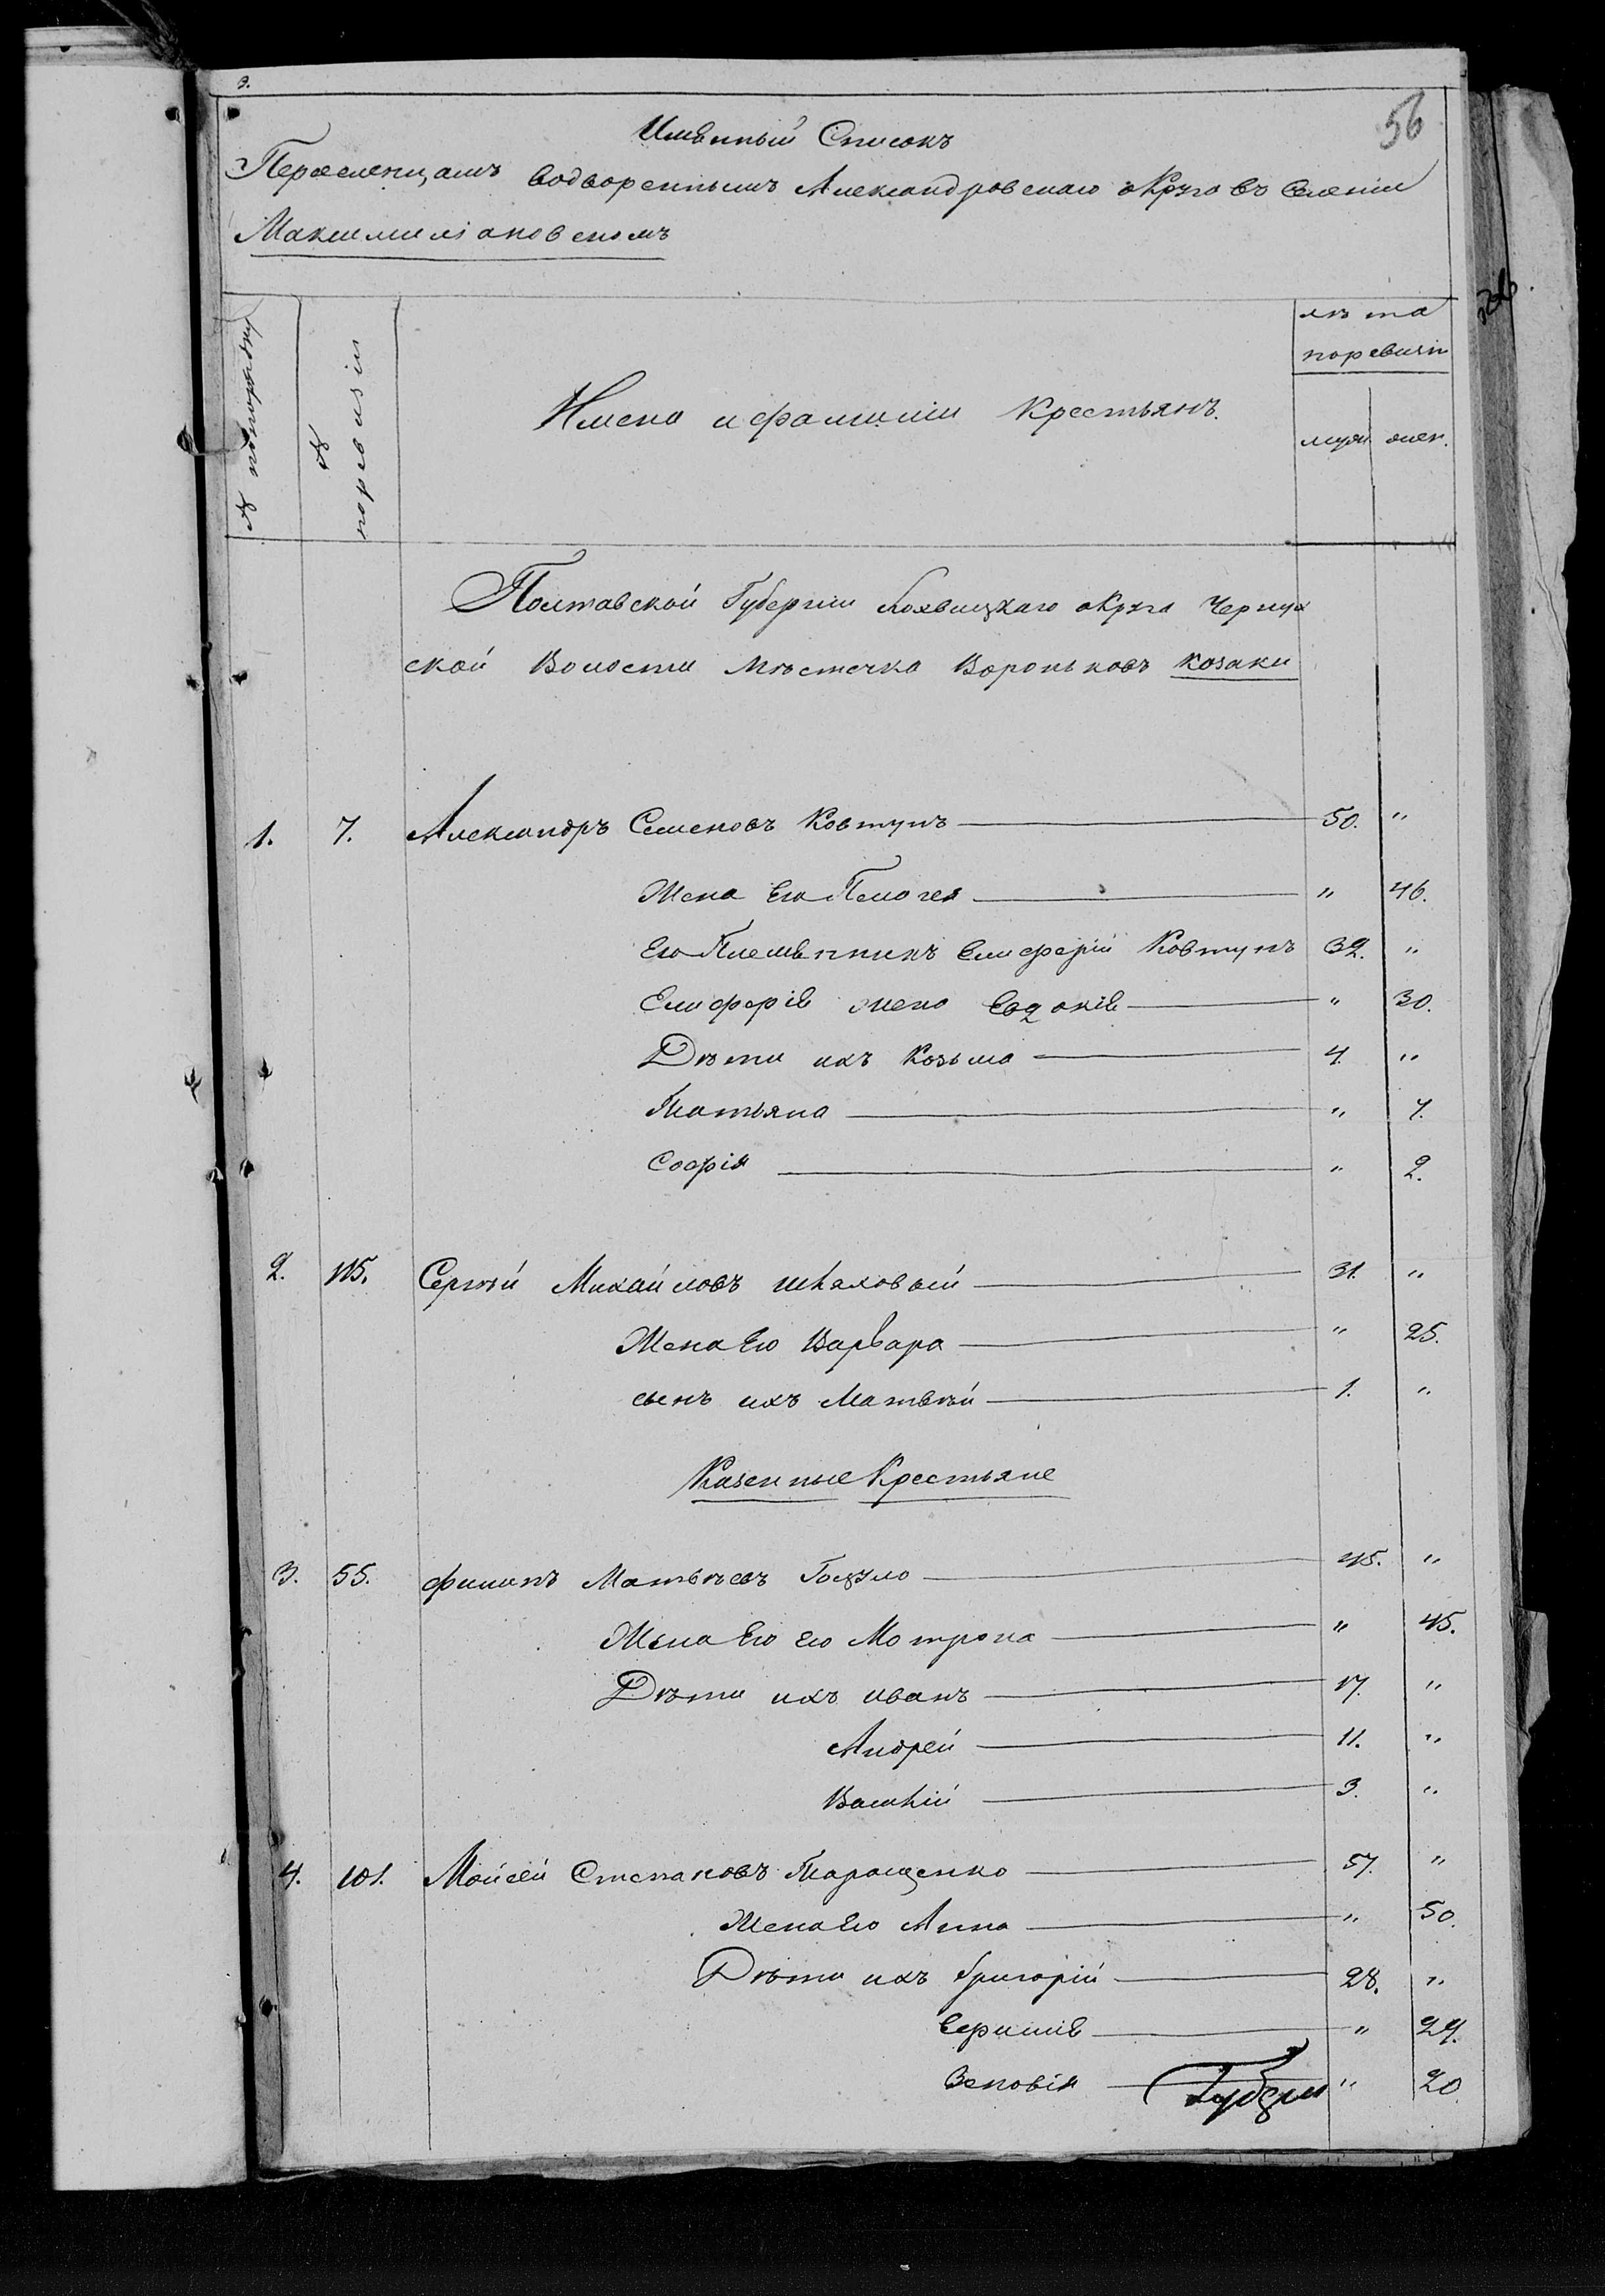 3.
56
Имѣнный Списокъ
Переселенцамъ водвореннымъ Александровскаго округа въ Селеніи
Максимиліановскомъ
№ попорядку
№ поревизіи
Имена ифамиліи Крестьянъ.
лѣта
поревизіи
муж. жен.
Полтавской Губерніи Лохвицкаго округа Чернух
ской Волости Мѣстечка Вороньковъ козаки
1. 7. Александръ Семеновъ Ковтунъ 50. "
Жена Его Пелагея " 46.
Его Племѣнникъ Елиферій Ковтунъ 32. "
Елиферія жена Евдокія " 30.
Дѣти ихъ Козьма 4. "
Татьяна " 7.
Софія " 2.
2. 115. Сергѣй Михайловъ Шкяховый 31. "
Жена Его Варвара " 25.
сынъ ихъ Матвѣй 1. "
Казенные Крестьяне
3. 55. Филипъ Матвѣевъ 45. "
Жена Его его Мотрона " 45.
Дѣти ихъ иванъ 17. "
Андрей 11. "
Василій 3. "
4. 101. Мойсей Степановъ Таращенко 57. "
Жена Его Анна " 50.
Дѣти ихъ Григорій 28. "
" 27.
Зеновія " 20.